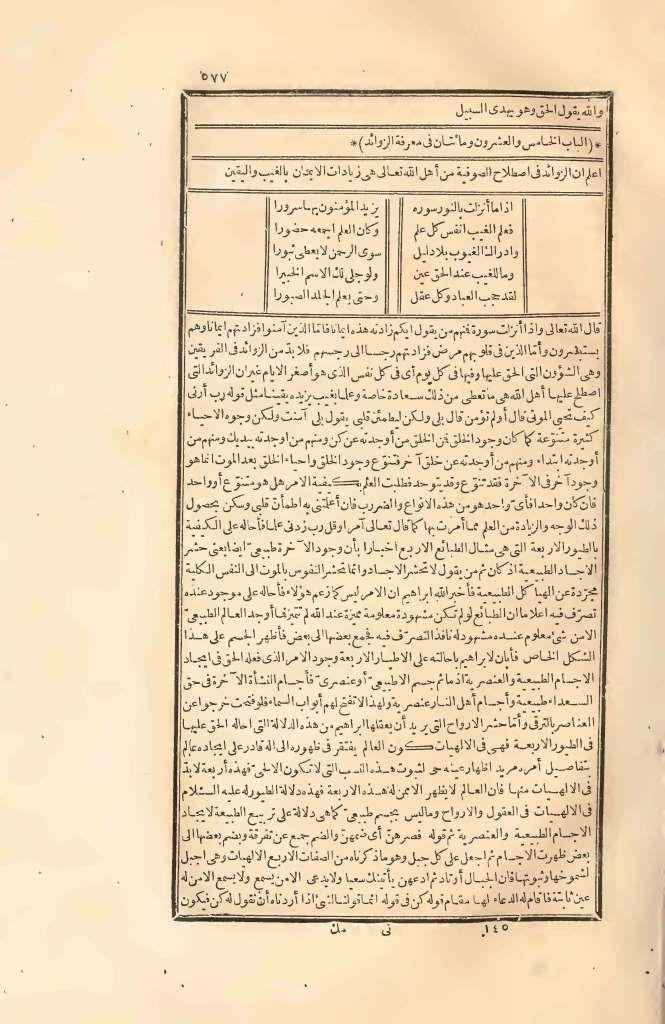 ٥٧٧
والله يقول الحق وهو يهدى السبيل
*(الباب الخامس والعشرون ومائتان فى معرفة الزوائد)*
اعلم ان الزوائد فى اصطلاح الصوفية من أهل الله تعالى هى زيادات الايمان بالغيب واليقين
اذا ما أنزلت بالنور سوره يزيد المؤمنون بها سرورا
فعلم الغيب انفس كل علم وكان العلم اجمعه حضورا
وادراك الغيوب بلا دليل سوى الرحمن لا يعطى ثبورا
وما للغيب عند الحق عين ولو جلى لك الاسم الخبيرا
لقد حجب العباد وكل عقل وحتى يعلم الجلد الصبورا
قال الله تعالى واذا أنزلت سورة فمنهم من يقول ايكم زادته هذه ايمانا فاما الذين آمنوا فزادتهم ايمانا وهم
يستبشرون وأما الذين فى قلوبهم مرض فزادتهم رجسا الى رجسهم فلا بد من الزوائد فى الفريقين
وهى الشؤون التى الحق عليها وفيها فى كل يوم أى فى كل نفس الذى هو أصغر الايام غير ان الزوائد التى
اصطلح عليها أهل الله هى ما تعطى من ذلك سعادة خاصة وعلما بغيب يزيده يقينا مثل قوله رب أرنى
كيف تحيى الموتى قال أولم تؤمن قال بلى ولكن ليطمئن قلبى يقول بلى آمنت ولكن وجوه الاحياء
كثيرة متنوعة كما كان وجود الخلق فمن الخلق من أوجدته عن كن ومنهم من اوجدته بيديك ومنهم من
أوجدته ابتداء ومنهم من أوجدته عن خلق آخر فتنوع وجود الخلق واحياء الخلق بعد الموت انما هو
وجود آخر فى الآخرة فقد تنوع وقد يتوحد فطلبت العلم بكيفية الامر هل هو متنوع أو واحد
فان كان واحدا فأى واحد هو من هذه الانواع والضرب فان أعلمتنى به اطمأن قلبى وسكن بحصول
ذلك الوجه والزيادة من العلم مما أمرت بها كما قال تعالى آمرا وقل رب زدنى علما فأحاله على الكيفية
بالطيور الاربعة التى هى مثال الطبائع الاربع اخبارا بأن وجود الآخرة طبيعى ايضا يعنى حشر
الاجساد الطبيعية اذ كان ثم من يقول لا تحشر الاجساد وانما تحشر النفوس بالموت الى النفس الكلية
مجردة عن الهياكل الطبيعية فأخبر الله ابراهيم ان الامر ليس كما زعم هؤلاء فأحاله على موجود عنده
تصرف فيه اعلاما ان الطبائع لو لم تكن مشهودة معلومة مميزة عند الله لم تتميز فما أوجد العالم الطبيعى
الا من شئ معلوم عنده مشهود له نافذ التصرف فيه فجمع بعضها الى بعض فأظهر الجسم على هذا
الشكل الخاص فأبان لابراهيم باحالته على الاطيار الاربعة وجود الامر الذى فعله الحق فى ايجاد
الاجسام الطبيعية والعنصرية اذ ما ثم جسم الا طبيعى أو عنصرى فأجسام النشأة الآخرة فى حق
السعداء طبيعية وأجسام أهل النار عنصرية ولهذا لا تفتح لهم أبواب السماء فلو فتحت خرجوا عن
العناصر بالترقى وأما حشر الارواح التى يريد أن يعقلها ابراهيم من هذه الدلالة التى احاله الحق عليها
فى الطيور الاربعة فهى فى الالهيات كون العالم يفتقر فى ظهوره الى اله قادر على ايجاده عالم
بتفاصيل أمره مريد اظهار عينه حى لثبوت هذه النسب التى لا تكون الا لحى فهذه أربعة لا بد
فى الالهيات منها فان العالم لا يظهر الا ممن له هذه الاربعة فهذه دلالة الطيور له عليه السلام
فى الالهيات فى العقول والارواح وما ليس بجسم طبيعى كما هى دلالة على تربيع الطبيعة لايجاد
الاجسام الطبيعية والعنصرية ثم قوله فصرهن أى ضمهن والضم جمع عن تفرقة وبضم بعضها الى
بعض ظهرت الاجسام ثم اجعل على كل جبل وهو ما ذكرناه من الصفات الاربع الالهيات وهى اجبل
لشموخها وثبوتها فان الجبال أوتاد ثم ادعهن يأتينك سعيا ولا يدعى الا من يسمع ولا يسمع الا من له
عين ثابتة فاقام له الدعاء لها مقام قوله كن فى قوله انما قولنا لشئ اذا أردناه أن نقول له كن فيكون
١٤٥ نى مك